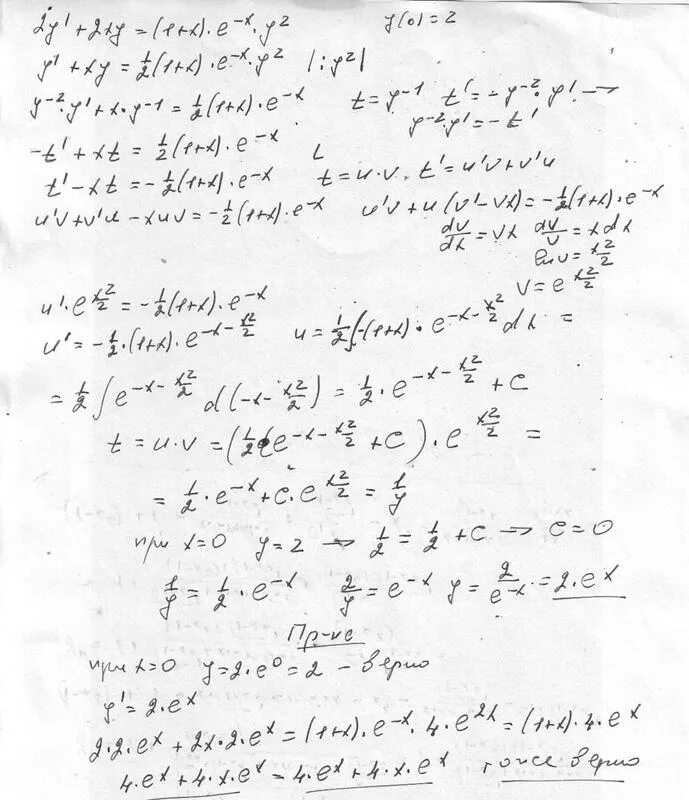 2y' + 2xy = (1+x)·e^{-x}·y²    y(0) = 2
y' + xy = ½(1+x)·e^{-x}·y²  |:y²|
y^{-2}·y' + x·y^{-1} = ½(1+x)·e^{-x}    t = y^{-1}  t' = -y^{-2}·y' →
y^{-2}y' = -t'
-t' + xt = ½(1+x)·e^{-x}
t' - xt = -½(1+x)·e^{-x}    t = u·v.  t' = u'v + v'u
u'v + v'u - xuv = -½(1+x)·e^{-x}    u'v + u(v' - vx) = -½(1+x)·e^{-x}
dv/dx = vx  dv/v = xdx
ln v = x²/2
v = e^{x²/2}
u'·e^{x²/2} = -½(1+x)·e^{-x}
u' = -½·(1+x)·e^{-x-x²/2}    u = ½∫-(1+x)·e^{-x-x²/2}dx =
= ½∫e^{-x-x²/2} d(-x-x²/2) = ½·e^{-x-x²/2} + C
t = u·v = (½e^{-x-x²/2} + C)·e^{x²/2} =
= ½·e^{-x} + C·e^{x²/2} = 1/y
при x=0  y=2 → ½ = ½ + C → C = 0
1/y = ½·e^{-x}  2/y = e^{-x}  y = 2/e^{-x} = 2·e^x
Пр-ка
при x=0  y = 2·e⁰ = 2 - верно
y' = 2·e^x
2·2·e^x + 2x·2·e^x = (1+x)·e^{-x}·4·e^{2x} = (1+x)·4·e^x
4·e^x + 4·x·e^x = 4·e^x + 4·x·e^x  тоже верно